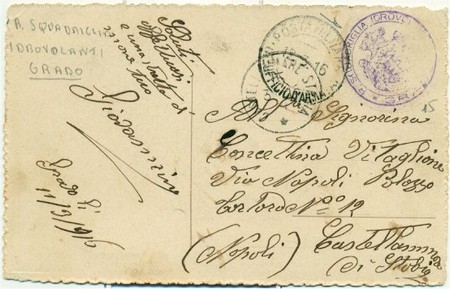 A. SQUADRIGLIA
IDROVOLANTI
GRADO
Saluti
affettuosi
e una stretta di
mano tuo
Giovannino
Grado li
POSTA MILITARE
UFFICIO D'ARMATA
SQUADRIGLIA IDROVOL
15
Alla Signorina
Concettina Vitaglione
Via Napoli Palazzo
Cortoro Nº 12
(Napoli) Castellammare
di Stabia